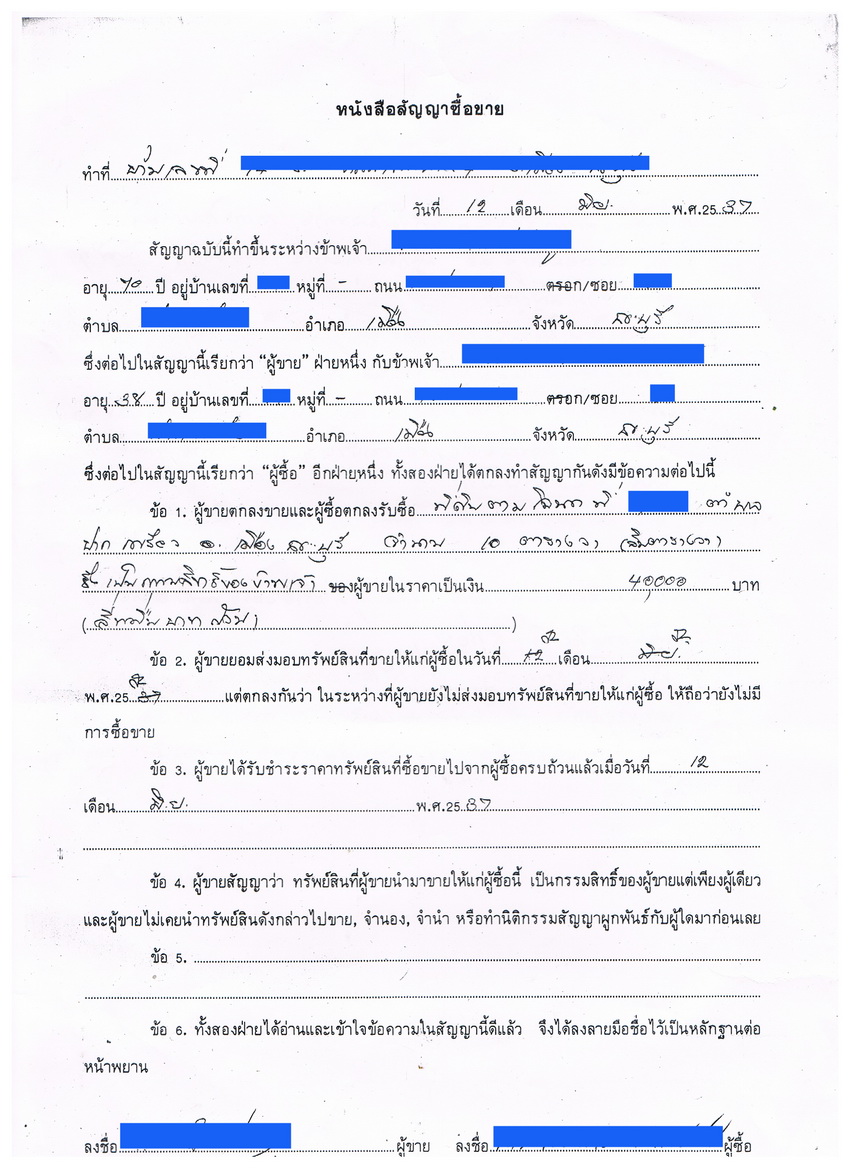 หนังสือสัญญาซื้อขาย
ทำที่ บ้านเลขที่
วันที่ 12 เดือน มิย. พ.ศ.25 37
สัญญาฉบับนี้ทำขึ้นระหว่างข้าพเจ้า
อายุ 70 ปี อยู่บ้านเลขที่ หมู่ที่ - ถนน ตรอก/ซอย
ตำบล อำเภอ เมือง จังหวัด สระบุรี
ซึ่งต่อไปในสัญญานี้เรียกว่า “ผู้ขาย” ฝ่ายหนึ่ง กับข้าพเจ้า
อายุ 38 ปี อยู่บ้านเลขที่ หมู่ที่ - ถนน ตรอก/ซอย
ตำบล อำเภอ เมือง จังหวัด สระบุรี
ซึ่งต่อไปในสัญญานี้เรียกว่า “ผู้ซื้อ” อีกฝ่ายหนึ่ง ทั้งสองฝ่ายได้ตกลงทำสัญญากันดังมีข้อความต่อไปนี้
ข้อ 1. ผู้ขายตกลงขายและผู้ซื้อตกลงรับซื้อ ที่ดินตามโฉนดที่ ตำบล
ปากเพรียว อ. เมือง สระบุรี จำนวน 10 ตารางวา (สิบตารางวา)
เป็นกรรมสิทธิ์ของข้าพเจ้า ของผู้ขายในราคาเป็นเงิน 40,000 บาท
(สี่หมื่นบาทถ้วน)
ข้อ 2. ผู้ขายยอมส่งมอบทรัพย์สินที่ขายให้แก่ผู้ซื้อในวันที่ 12 เดือน มิย.
พ.ศ.25 37 แต่ตกลงกันว่า ในระหว่างที่ผู้ขายยังไม่ส่งมอบทรัพย์สินที่ขายให้แก่ผู้ซื้อ ให้ถือว่ายังไม่มี
การซื้อขาย
ข้อ 3. ผู้ขายได้รับชำระราคาทรัพย์สินที่ซื้อขายไปจากผู้ซื้อครบถ้วนแล้วเมื่อวันที่ 12
เดือน มิ.ย. พ.ศ.25 37
ข้อ 4. ผู้ขายสัญญาว่า ทรัพย์สินที่ผู้ขายนำมาขายให้แก่ผู้ซื้อนี้ เป็นกรรมสิทธิ์ของผู้ขายแต่เพียงผู้เดียว
และผู้ขายไม่เคยนำทรัพย์สินดังกล่าวไปขาย, จำนอง, จำนำ หรือทำนิติกรรมสัญญาผูกพันธ์กับผู้ใดมาก่อนเลย
ข้อ 5.
ข้อ 6. ทั้งสองฝ่ายได้อ่านและเข้าใจข้อความในสัญญานี้ดีแล้ว จึงได้ลงลายมือชื่อไว้เป็นหลักฐานต่อ
หน้าพยาน
ลงชื่อ ผู้ขาย ลงชื่อ ผู้ซื้อ